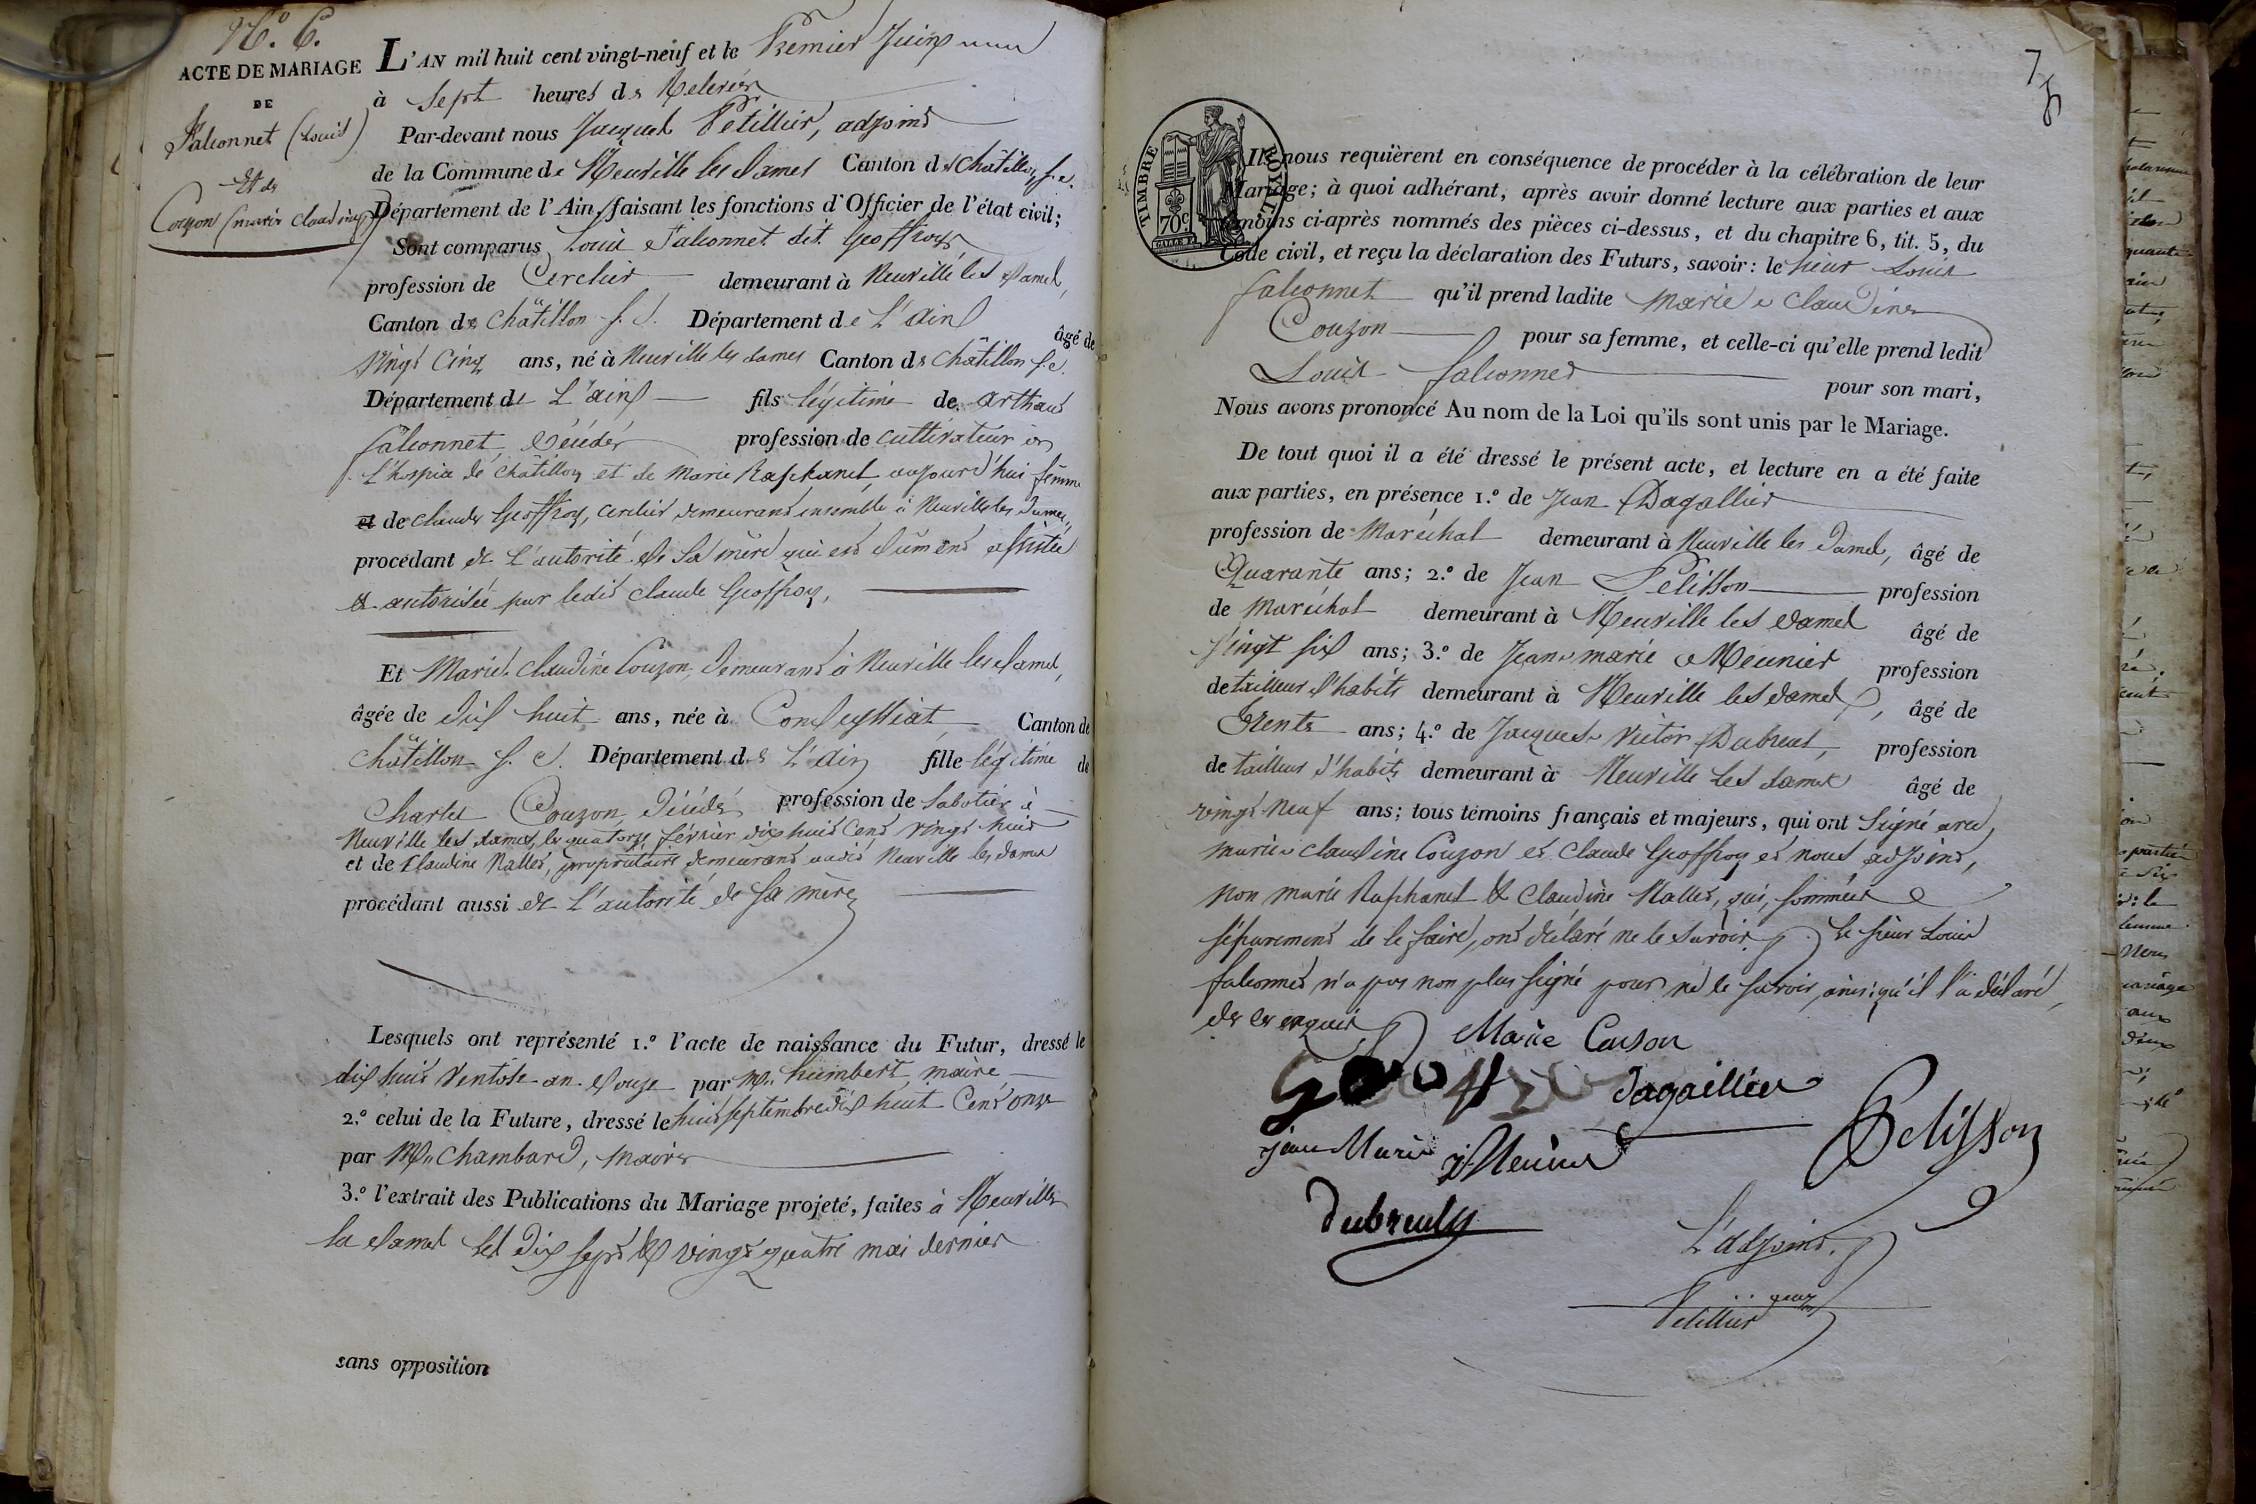 N.º 6.
ACTE DE MARIAGE
DE
Falconnet (Louis)
Et de
Couzon (marie Claudine)
L'AN mil huit cent vingt-neuf et le Premier Juin
à Sept heures de Relevée
Par-devant nous Jacques Petillier, adjoint
de la Commune de Neuville les Dames Canton de Châtillon s. c.
Département de l'Ain, faisant les fonctions d'Officier de l'état civil;
Sont comparus Louis Falconnet dit Geoffroy
profession de Cerclier demeurant à Neuville les Dames,
Canton de Châtillon s. C. Département de L'ain
âgé de
vingt Cinq ans, né à Neuville les dames Canton de Châtillon s. c.
Département de L'ain fils légitime de Arthaud
falconnet, Décédé profession de cultivateur en
L'hospice de Châtillon et de Marie Raphanel, aujourd'hui femme
et de claude Geoffroy, cerclier demeurant ensemble à Neuville les Dames,
procédant de L'autorité de Sa mère qui est dûment assistée
et autorisée par ledit Claude Geoffroy,
Et Marie Claudine Couzon, Demeurant à Neuville les Dames,
âgée de dix huit ans, née à Condeyssiat Canton de
Châtillon s. C. Département de L'ain fille légitime de
Charles Couzon, Décédé profession de Sabotier à
Neuville les dames, le quatorze février dix huit Cent vingt huit
et de Claudine Nallet, propriétaire demeurant audit Neuville les Dames
procédant aussi de L'autorité de Sa mère
Lesquels ont représenté 1.º l'acte de naissance du Futur, dressé le
dix huit Ventose an Douze par Mr. humbert, maire
2.º celui de la Future, dressé le huit Septembre dix huit Cent onze
par Mr. Chambard, maire
3.º l'extrait des Publications du Mariage projeté, faites à Neuville
les Dames les dix sept & vingt quatre mai dernier
sans opposition
7
TIMBRE ROYAL
70 c
Ils nous requièrent en conséquence de procéder à la célébration de leur
Mariage; à quoi adhérant, après avoir donné lecture aux parties et aux
témoins ci-après nommés des pièces ci-dessus, et du chapitre 6, tit. 5, du
Code civil, et reçu la déclaration des Futurs, savoir: le Sieur Louis
falconnet qu'il prend ladite Marie Claudine
Couzon pour sa femme, et celle-ci qu'elle prend ledit
Louis falconnet pour son mari,
Nous avons prononcé Au nom de la Loi qu'ils sont unis par le Mariage.
De tout quoi il a été dressé le présent acte, et lecture en a été faite
aux parties, en présence 1.º de Jean Dagallier
profession de Maréchal demeurant à Neuville les Dames, âgé de
Quarante ans; 2.º de Jean Pelisson profession
de Maréchal demeurant à Neuville les Dames âgé de
Vingt six ans; 3.º de Jean marie Meunier profession
de tailleur d'habits demeurant à Neuville les Dames, âgé de
Trente ans; 4.º de Jacques Victor Dubreul, profession
de tailleur d'habits demeurant à Neuville les Dames âgé de
vingt Neuf ans; tous témoins français et majeurs, qui ont Signé avec
Marie Claudine Couzon et Claude Geoffroy et nous adjoint,
non Marie Raphanel & Claudine Nallet, qui, sommées
séparément de le faire, ont déclaré ne le Savoir. Le Sieur Louis
falconnet n'a pas non plus Signé pour ne le Savoir ainsi qu'il l'a déclaré,
de ce enquis
Marie Couson
Dagaillier
jean Marie Meunier
Pelisson
dubreuly
L'adjoint.
Petillier